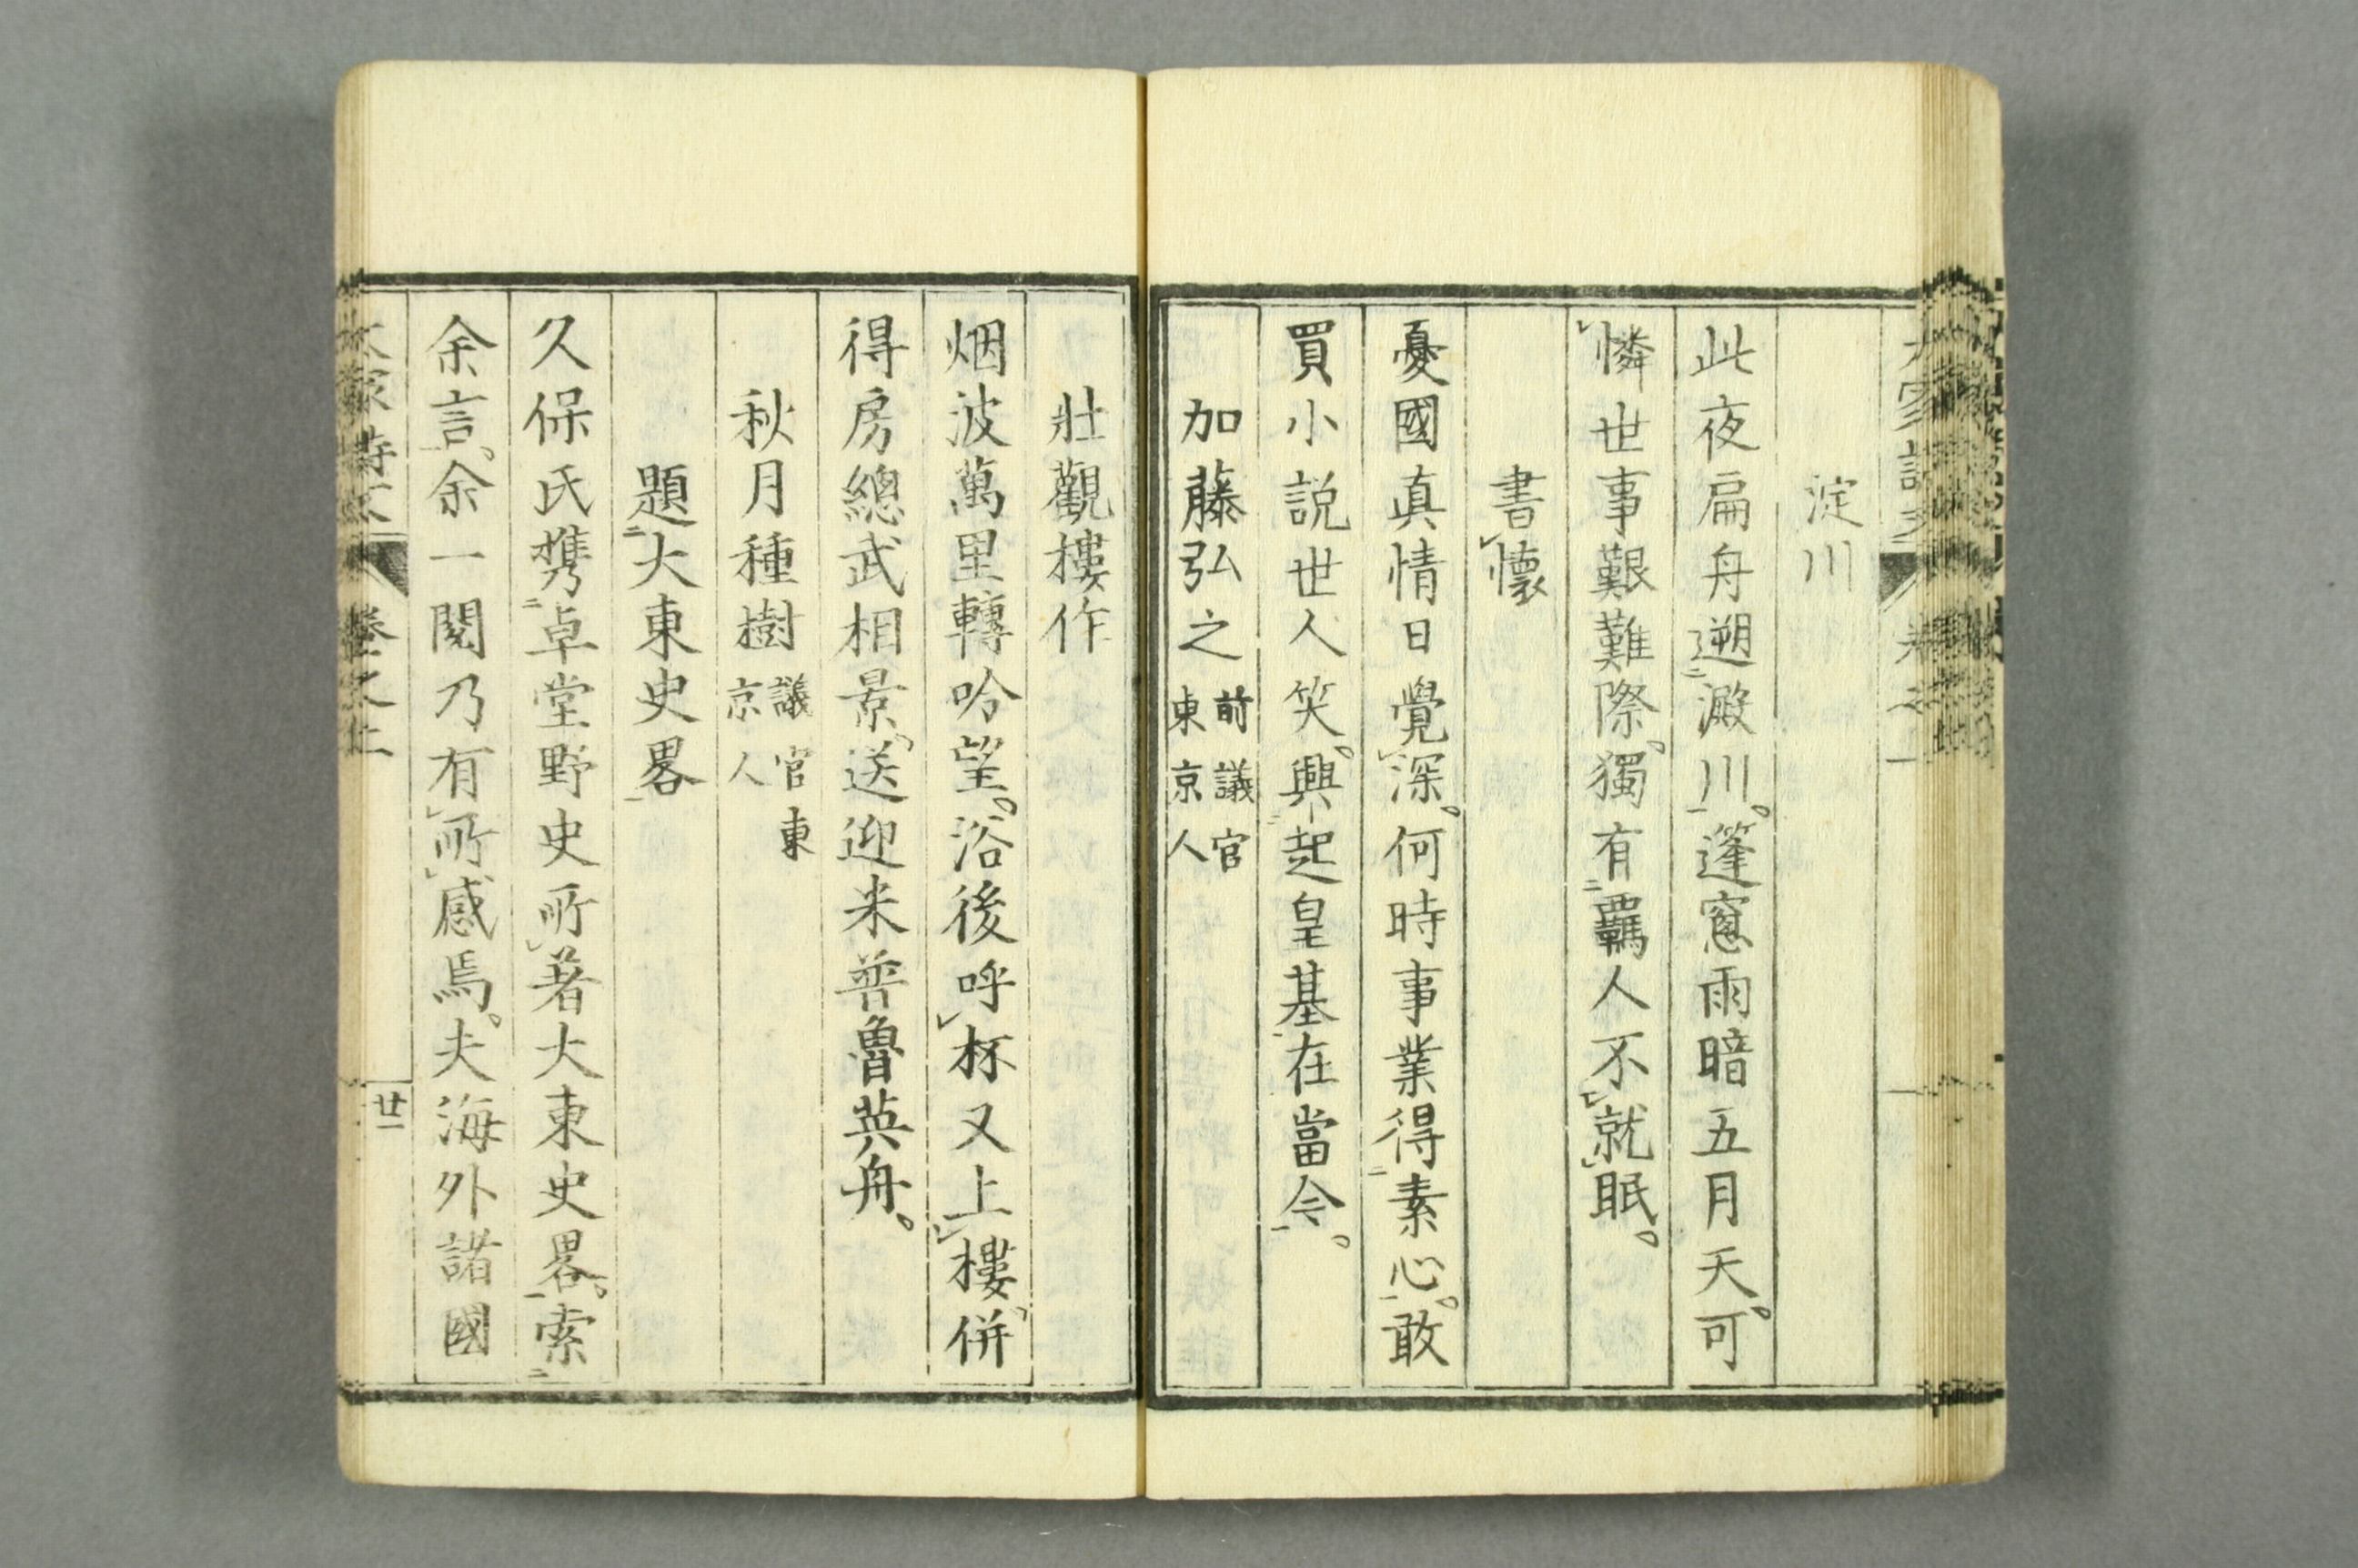 淀川
此夜扁舟遡澱川。篷窓雨暗五月天。可
憐世事艱難際。獨有覊人不就眠。
書懷
憂國真情日覺深。何時事業得素心。敢
買小説世人笑。興起皇基在當今。
加藤弘之 前議官東京人
壯觀樓作
烟波萬里轉吟望。浴後呼杯又上樓。併
得房總武相景。送迎米普魯英舟。
秋月種樹 議官東京人
題大東史畧
久保氏携卓堂野史所著大東史畧。索
余言。余一閱乃有所感焉。夫海外諸國
卷之上
廿一